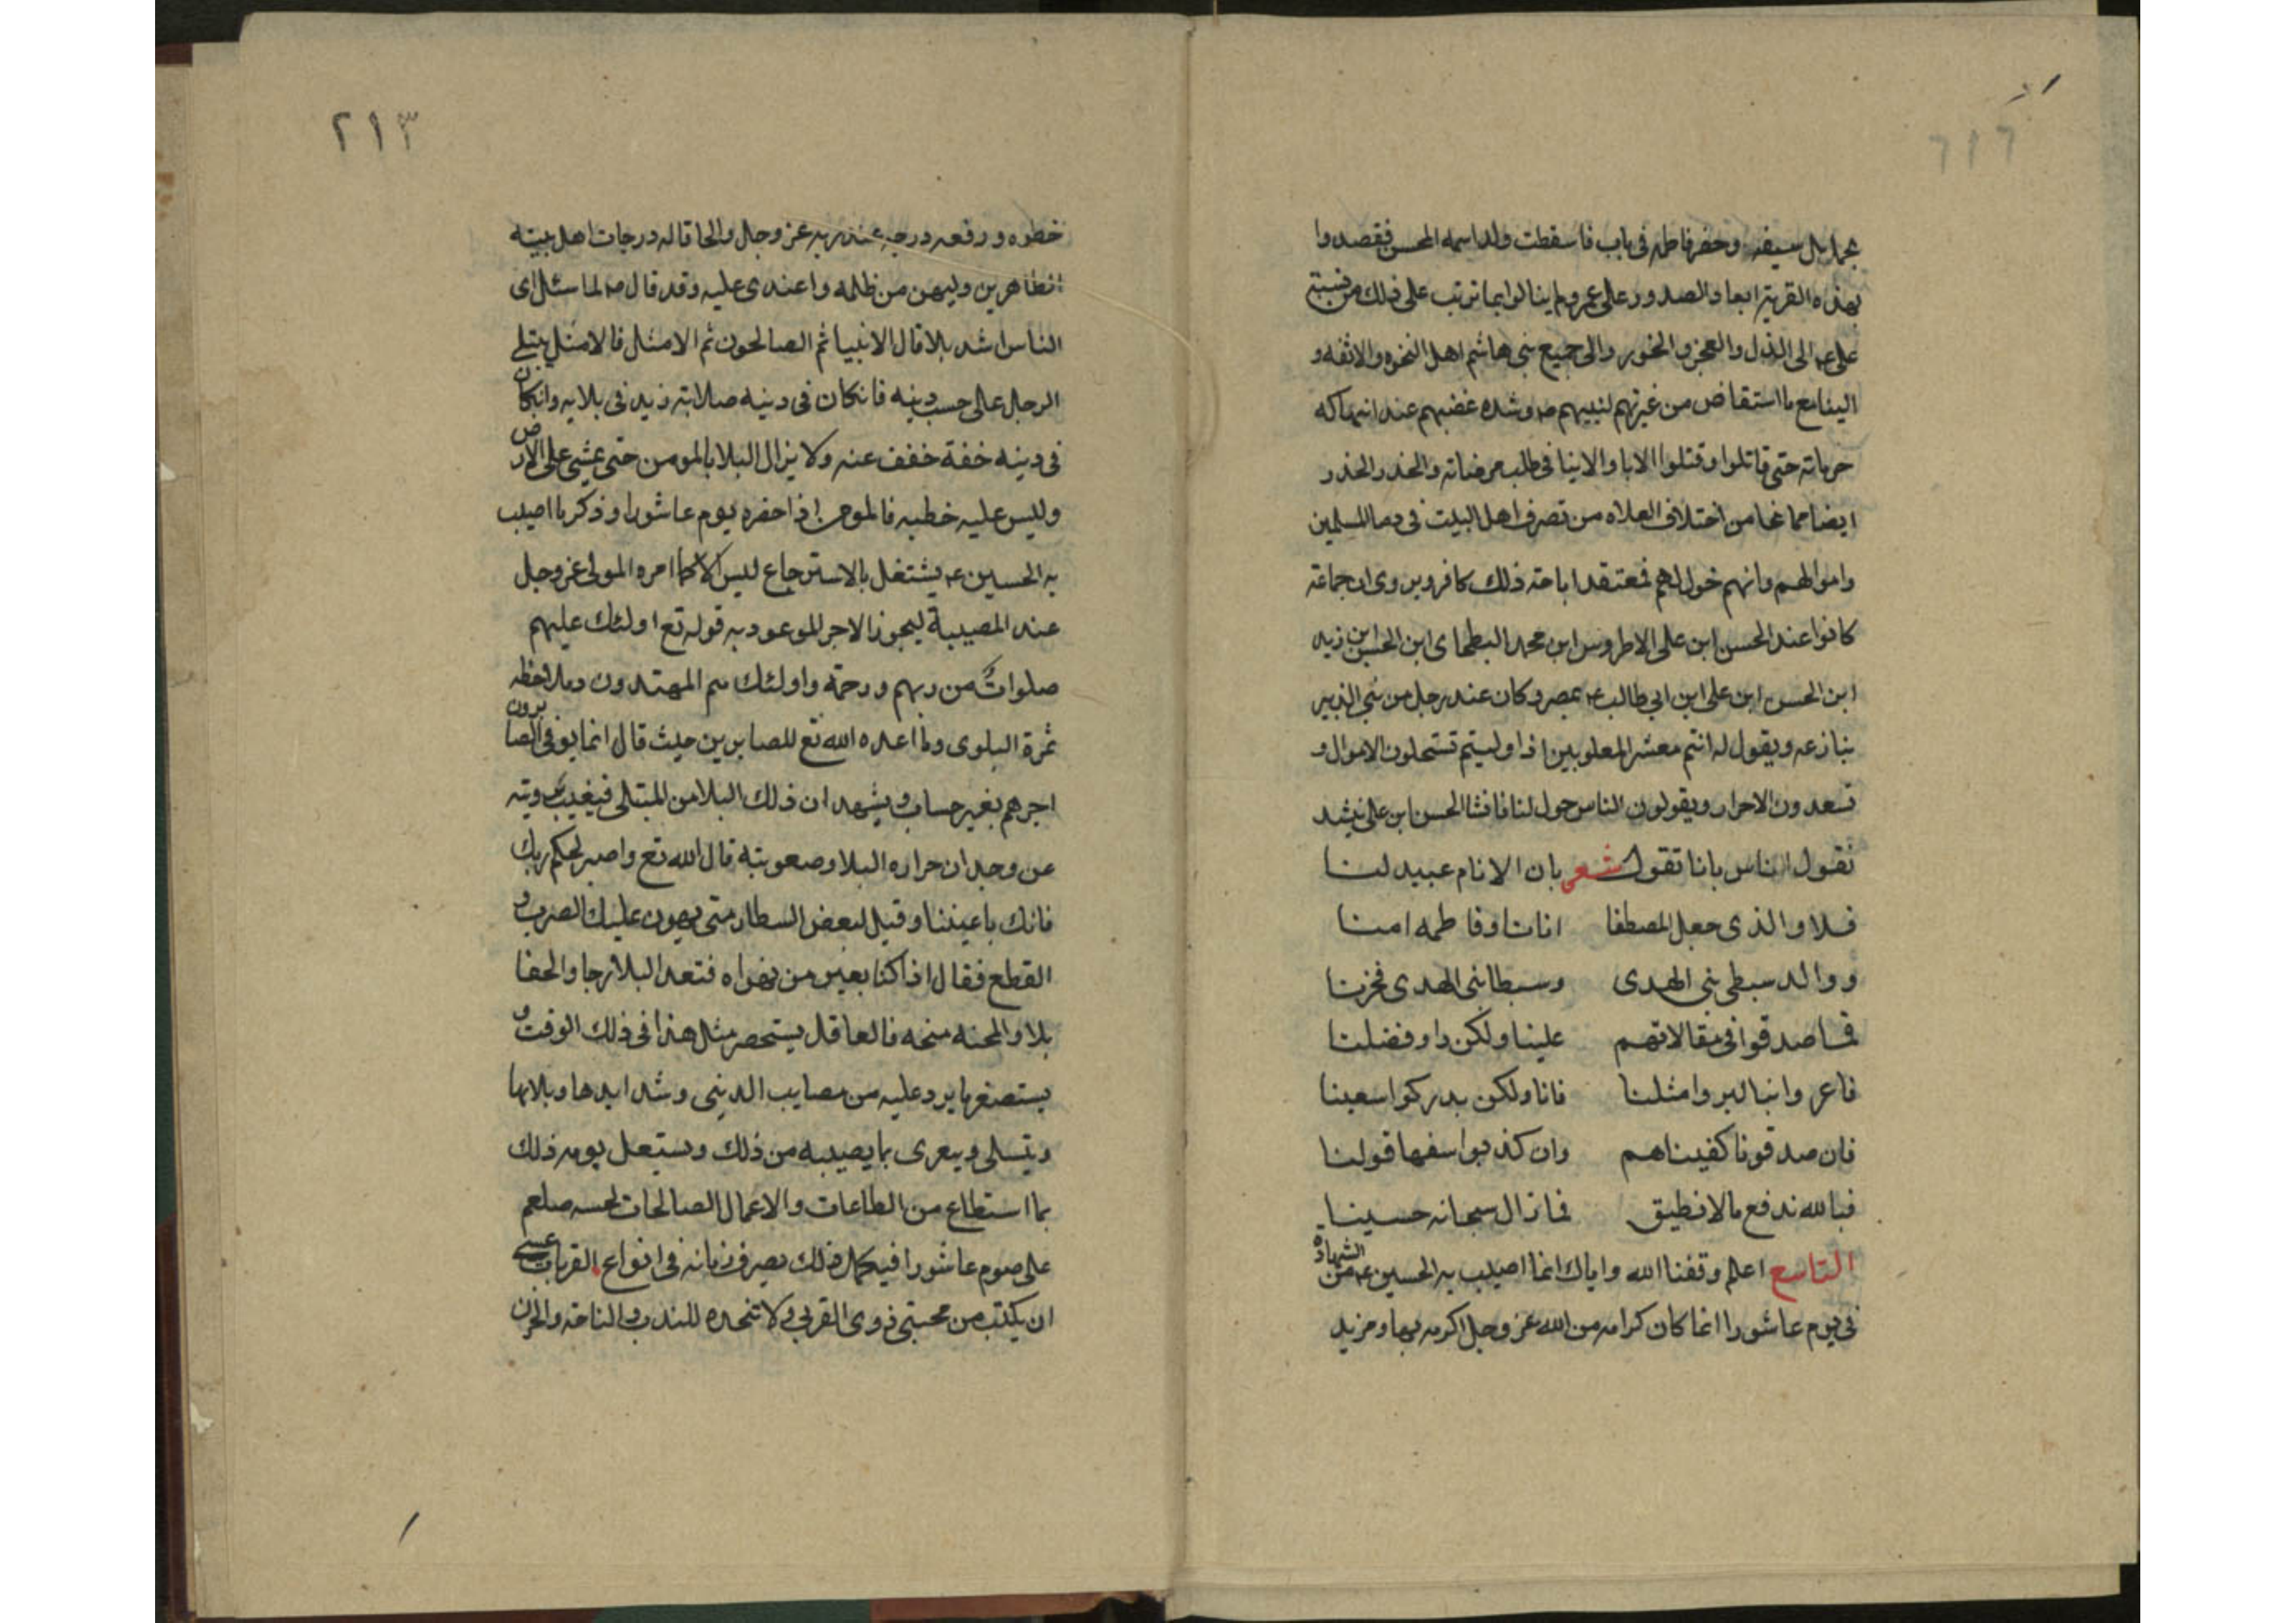 بحمايل سيفه وحضر فاطمه فى باب فاسقطت ولدا اسمه المحسن فقصدوا
بهذه القرية ابعاد الصدور على عمر ولم ينالوا بما ترتب على ذلك من نسبة
على ع م الى الذل والعجز والخور والى جميع بنى هاشم اهل النخوه والانفه و
مع ما استفاض من غيرتهم لنبيهم ص م وشده غضبهم عند انتهاكه
حرماته حتى قاتلوا وقتلوا الابا والابنا فى طلب مرضاته والحذر الحذر
ايضا مما من اختلاق الغلاه من تصرف اهل البيت فى دما المسلمين
واموالهم وانهم خول لهم فمعتقد اباحة ذلك كافر وروى ان جماعة
كانوا عند الحسن ابن على الاطروس ابن محمد البطحاى ابن الحسن ابن زيد
ابن الحسن ابن على ابن ابي طالب ع م بمصر وكان عنده رجل من بنى الزبير
ينازعه ويقول له انتم معشر اذا وليتم تستحلون الاموال و
الاحرار ويقولون الناس خول لنا فانشا الحسن ابن على ينشد
تقول الناس بانا تقول شعر بان الانام عبيد لنا
فلا والذى جعل المصطفا ابانا وفاطمه امنا
ووالد سبطى بنى الهدى وسبطا نبى الهدى فخرنا
فما صدقوا فى مقالاتهم علينا ولكن راو فضلنا
امثلنا فانا ولكن يدركوا سعينا
فان صدقونا كفيناهم وان كذبوا سفها قولنا
فبالله ندفع ما لا نطيق فما زال سبحانه حسبنا
التاسع اعلم وفقنا الله واياك انما اصيب به الحسين ع م من الشهاده
فى يوم عاشورا انما كان كرامه من الله عز وجل اكرمه بها ومزيد
٢١٣
خطوه ورفعه درجه عند ربه عز وجل والحاقا له درجات اهل بيته
الطاهرين وليهن من ظلمه واعتدى عليه وقد قال ص م لما سئل اى
الناس اشد بلا قال الانبيا ثم الصالحون ثم الامثل فالامثل يبتلى
الرجل على حسب دينه فان كان فى دينه صلابته زيد فى بلايه وان كان
فى دينه خفة خفف عنه ولا يزال البلا بالمومن حتى يمشى على الارض
وليس عليه خطيه فالمومن اذا حضره يوم عاشورا وذكر ما اصيب
به الحسين ع م يشتغل بالاسترجاع ليس الا كما امره المولى عز وجل
عند المصيبة ليحوز الاجر الموعود به قوله تع اولئك عليهم
صلوات من ربهم ورحمة واولئك هم المهتدون وملاحظه
ثمرة البلوى وما اعده الله تع للصابرين حيث قال انما يوفى الصابرون
اجرهم بغير حساب ويشهد ان ذلك البلا من المبتلى فيغيب برويته
عن وجدان حراره البلا وصعوبته قال الله تع واصبر لحكم ربك
فانك باعيننا وقيل لبعض الشطار متى يهون عليك الضرب و
القطع فقال اذا كنا بعين من نهواه فتعد البلا رجا والجفا
بلا والمحنه منحه فالعاقل يستحضر مثل هذا فى ذلك الوقت و
يستصغر ما يرد عليه من مصايب الدنيى وشدايدها وبلايها
ويتسلى ويعزى بما يصيبه من ذلك ويستعمل يومه ذلك
بما استطاع من الطاعات والاعمال الصالحات لحسه صلعم
على صوم عاشورا فيكمل ذلك بصرف زمانه فى انواع القربات عسى
ان يكتب من محبتى ذوى القربى ولا تتخذه للندب والناحة والحزن